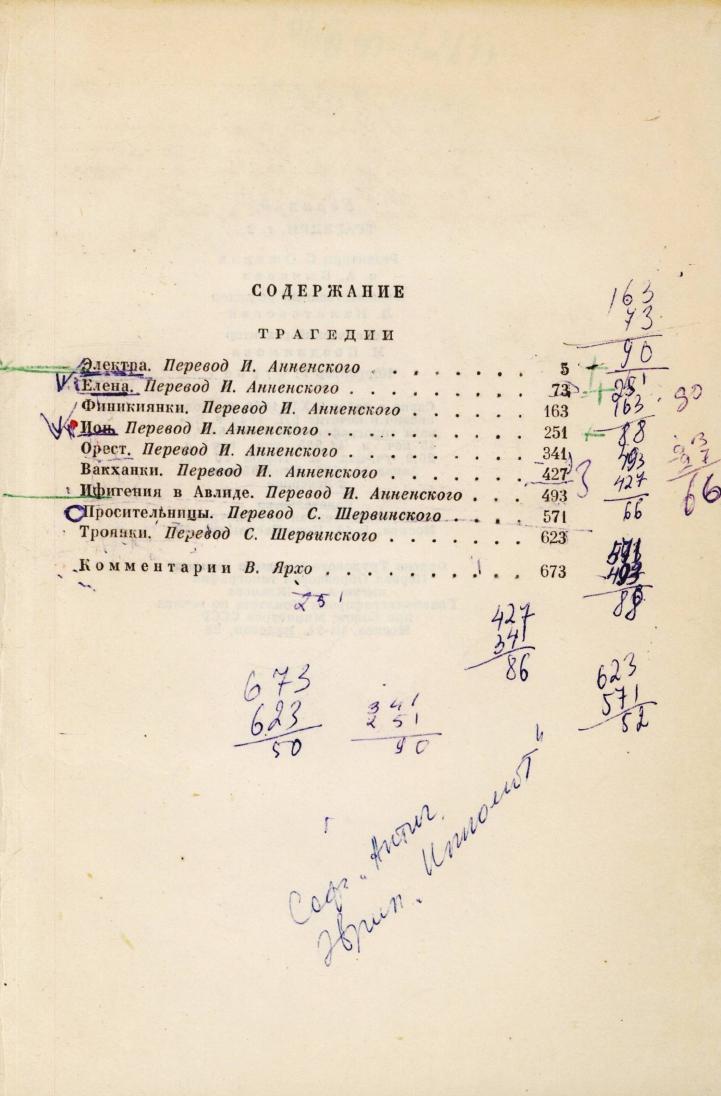 СОДЕРЖАНИЕ
ТРАГЕДИИ
Электра. Перевод И. Анненского . . . . . . . . 5
Елена. Перевод И. Анненского . . . . . . . . . 73
Финикиянки. Перевод И. Анненского . . . . . . . 163
Ион. Перевод И. Анненского . . . . . . . . . . 251
Орест. Перевод И. Анненского . . . . . . . . . 341
Вакханки. Перевод И. Анненского . . . . . . . . 427
Ифигения в Авлиде. Перевод И. Анненского . . . . 493
Просительницы. Перевод С. Шервинского . . . . . 571
Троянки. Перевод С. Шервинского . . . . . . . . 623
Комментарии В. Ярхо . . . . . . . . . . 673
163
73
90
251
163
88
90
3
493
427
66
66
571
493
88
251
427
341
86
623
571
52
673
623
50
341
251
90
Соф. „Антиг.
Эврип. „Ипполит"